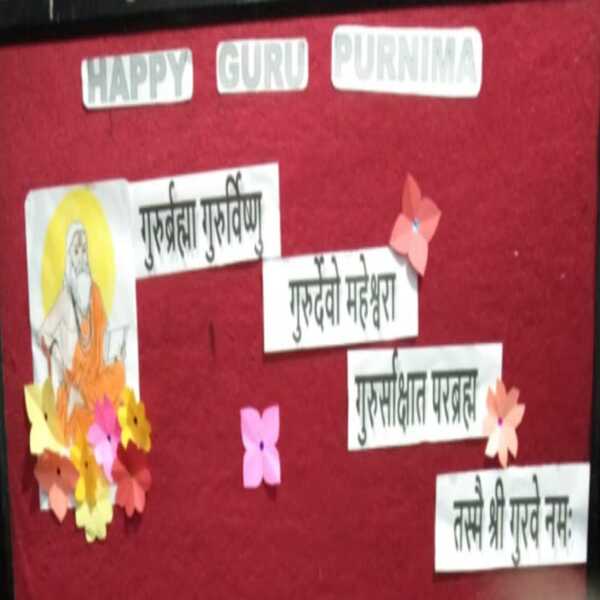 HAPPY GURU PURNIMA
गुरुर्ब्रह्मा गुरुर्विष्णु
गुरुर्देवो महेश्वरा
गुरुर्साक्षात परब्रह्म
तस्मै श्री गुरवे नमः